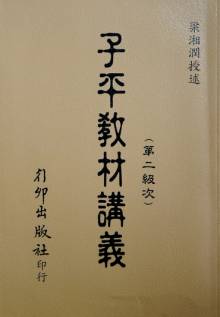 梁湘潤授述
子平教材講義
（第二級次）
行卯出版社
印行